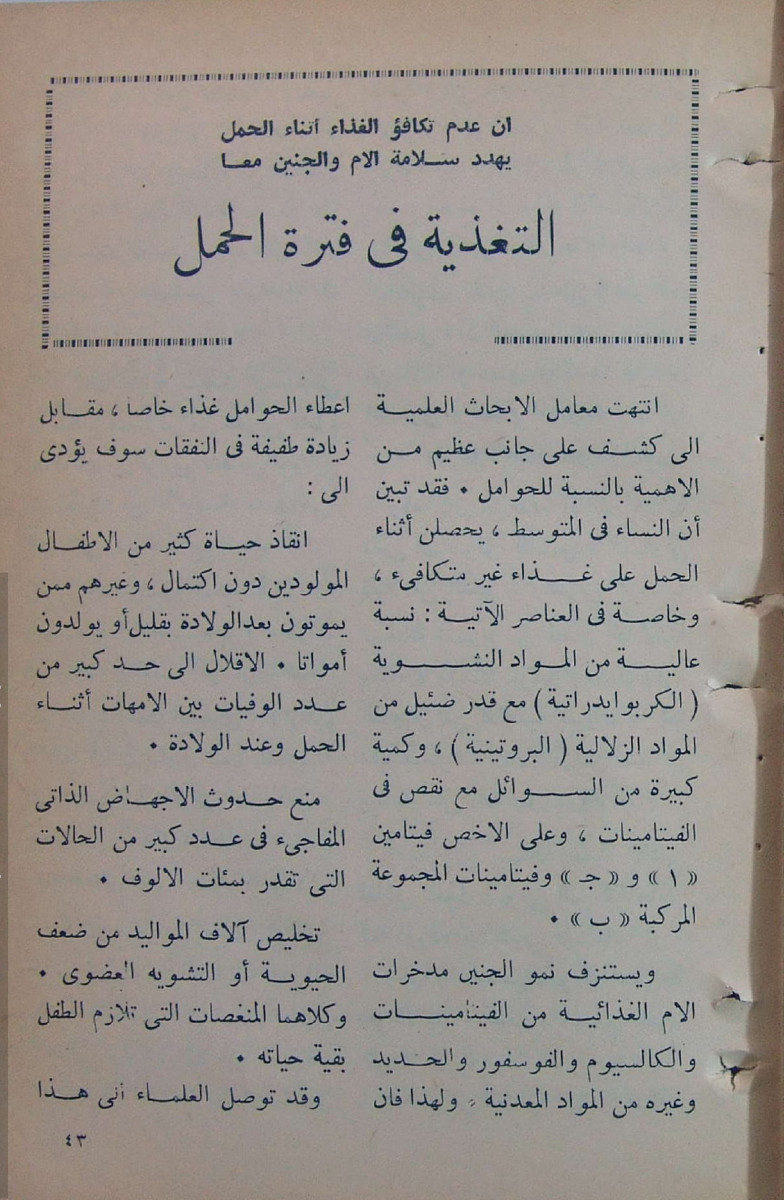 ان عدم تكافؤ الغذاء أثناء الحمل
يهدد ســلامة الام والجنين معـا
التغذية فى فترة الحمل
انتهت معامل الابحاث العلميـة
الى كشــف على جانب عظيم مـن
الاهمية بالنسبة للحوامل ٠ فقد تبين
أن النساء فى المتوسط ، يحصلن أثناء
الحمل على غــذاء غير متكافىء ،
وخاصـة فى العناصر الآتيـة : نسبة
عاليــة من المـواد النشــوية
( الكربوايدراتية ) مع قدر ضئيل من
المواد الزلالية ( البروتينية ) ، وكمية
كبيرة من الســوائل مع نقص فى
الفيتامينات ، وعلى الاخص فيتامين
« ا » و « جـ » وفيتامينات المجموعة
المركبة « ب » ٠
ويستنزف نمو الجنين مدخرات
الام الغذائيـة من الفيتامينــات
والكالسيوم والفوسفور والحـديد
وغيره من المواد المعدنية ٠ ولهذا فان
اعطاء الحوامل غذاء خاصا ، مقـابل
زيادة طفيفة فى النفقات سوف يؤدى
الى :
انقاذ حيـاة كثير من الاطفـال
المولودين دون اكتمال ، وغيرهم ممن
يموتون بعدالولادة بقليل أو يولدون
أمواتا ٠ الاقلال الى حـد كبير من
عـدد الوفيات بين الامهات أثنـاء
الحمل وعند الولادة ٠
منع حـدوث الاجهـاض الذاتى
المفاجىء فى عـدد كبير من الحالات
التى تقدر بمئات الالوف ٠
تخليص آلاف المواليد من ضعف
الحيويـة أو التشويه العضوى ٠
وكلاهما المنغصات التى تلازم الطفل
بقية حياته ٠
وقد توصل العلمـاء الى هـذا
٤٣